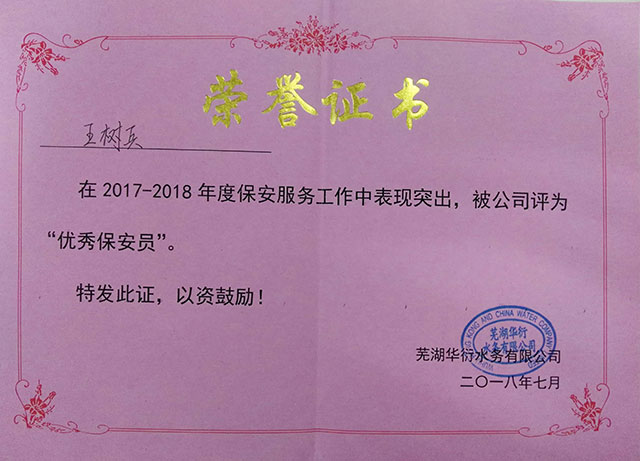 荣誉证书
王树兵
在2017-2018年度保安服务工作中表现突出，被公司评为
“优秀保安员”。
特发此证，以资鼓励！
KONG AND CHINA WATER COMPANY
芜湖华衍
水务有限公司
芜湖华衍水务有限公司
二〇一八年七月